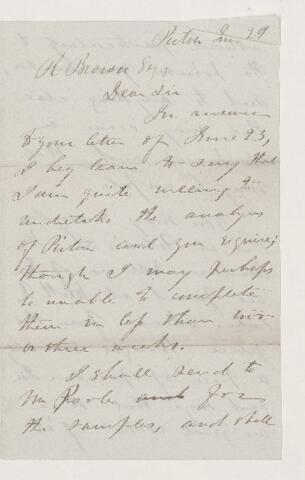 Pictou June 29
R Brown Esq
Dear Sir
In answer
to your letter of June 23,
I beg leave to say that
I am quite willing to
undertake the analysis
of Pictou and you require;
though I may perhaps
be unable to complete
them in less than two
or three weeks.
I shall send to
Mr Poole and for
the samples, and shall